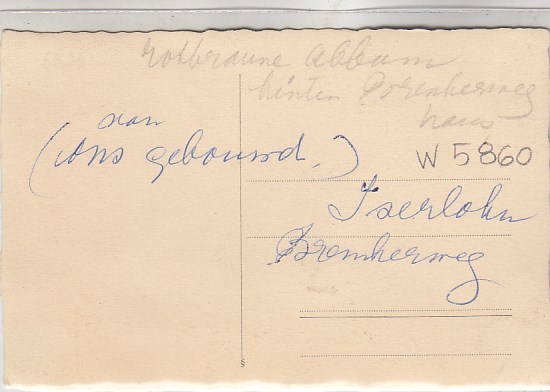 rotbraune Album
hinten Bremkerweg
haus
von
(uns gebaut.)
W 5860
Iserlohn
Bremkerweg